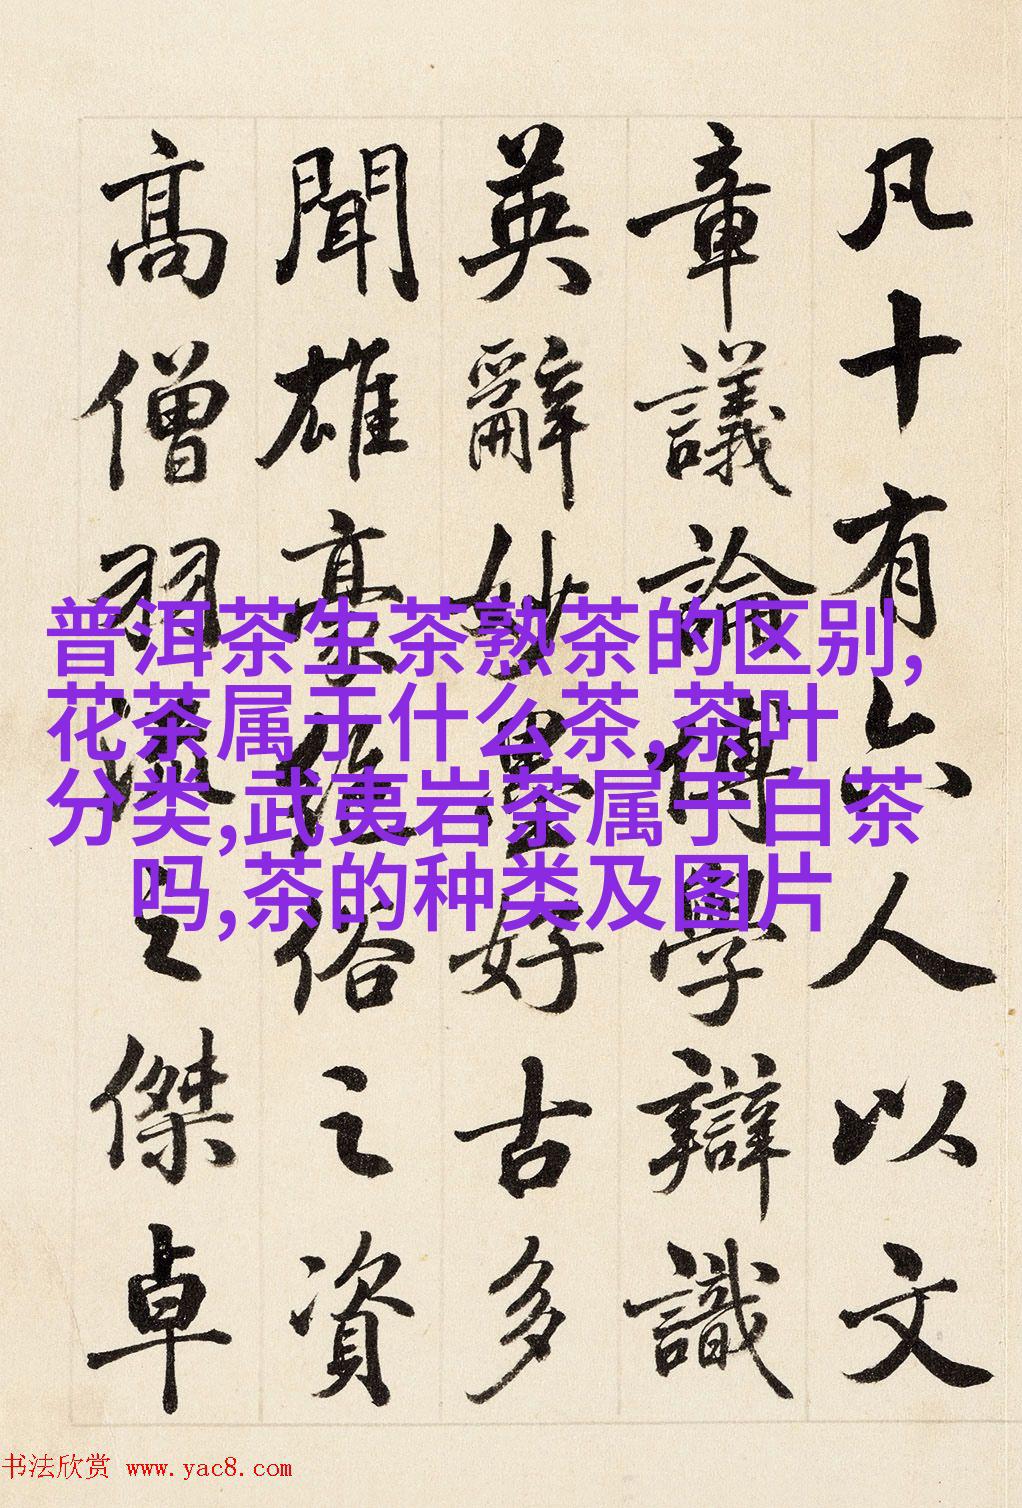 凡十有六人以文
章議論博學辯識
英辭妙墨好古多
聞雄豪絕俗之資
高僧羽流之傑卓
普洱茶生茶熟茶的区别,
花茶属于什么茶,茶叶
分类,武夷岩茶属于白茶
吗,茶的种类及图片
书法欣赏 www.yac8.com